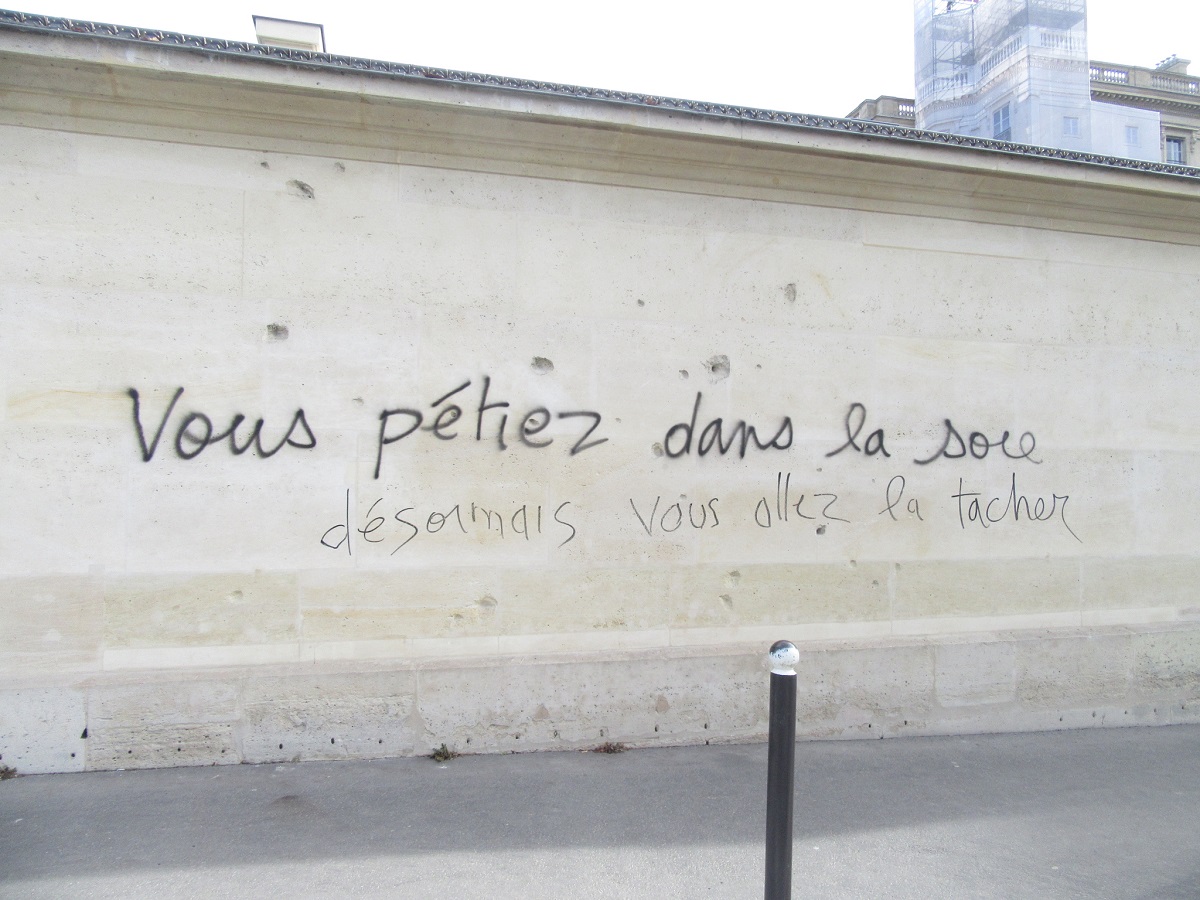 Vous pétiez dans la soie
désormais vous allez la tacher